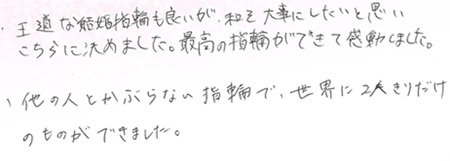 ・王道な結婚指輪も良いが、和を大事にしたいと思い
こちらに決めました。最高の指輪ができて感動しました。
、他の人とかぶらない指輪で、世界に2人きりだけ
のものができました。